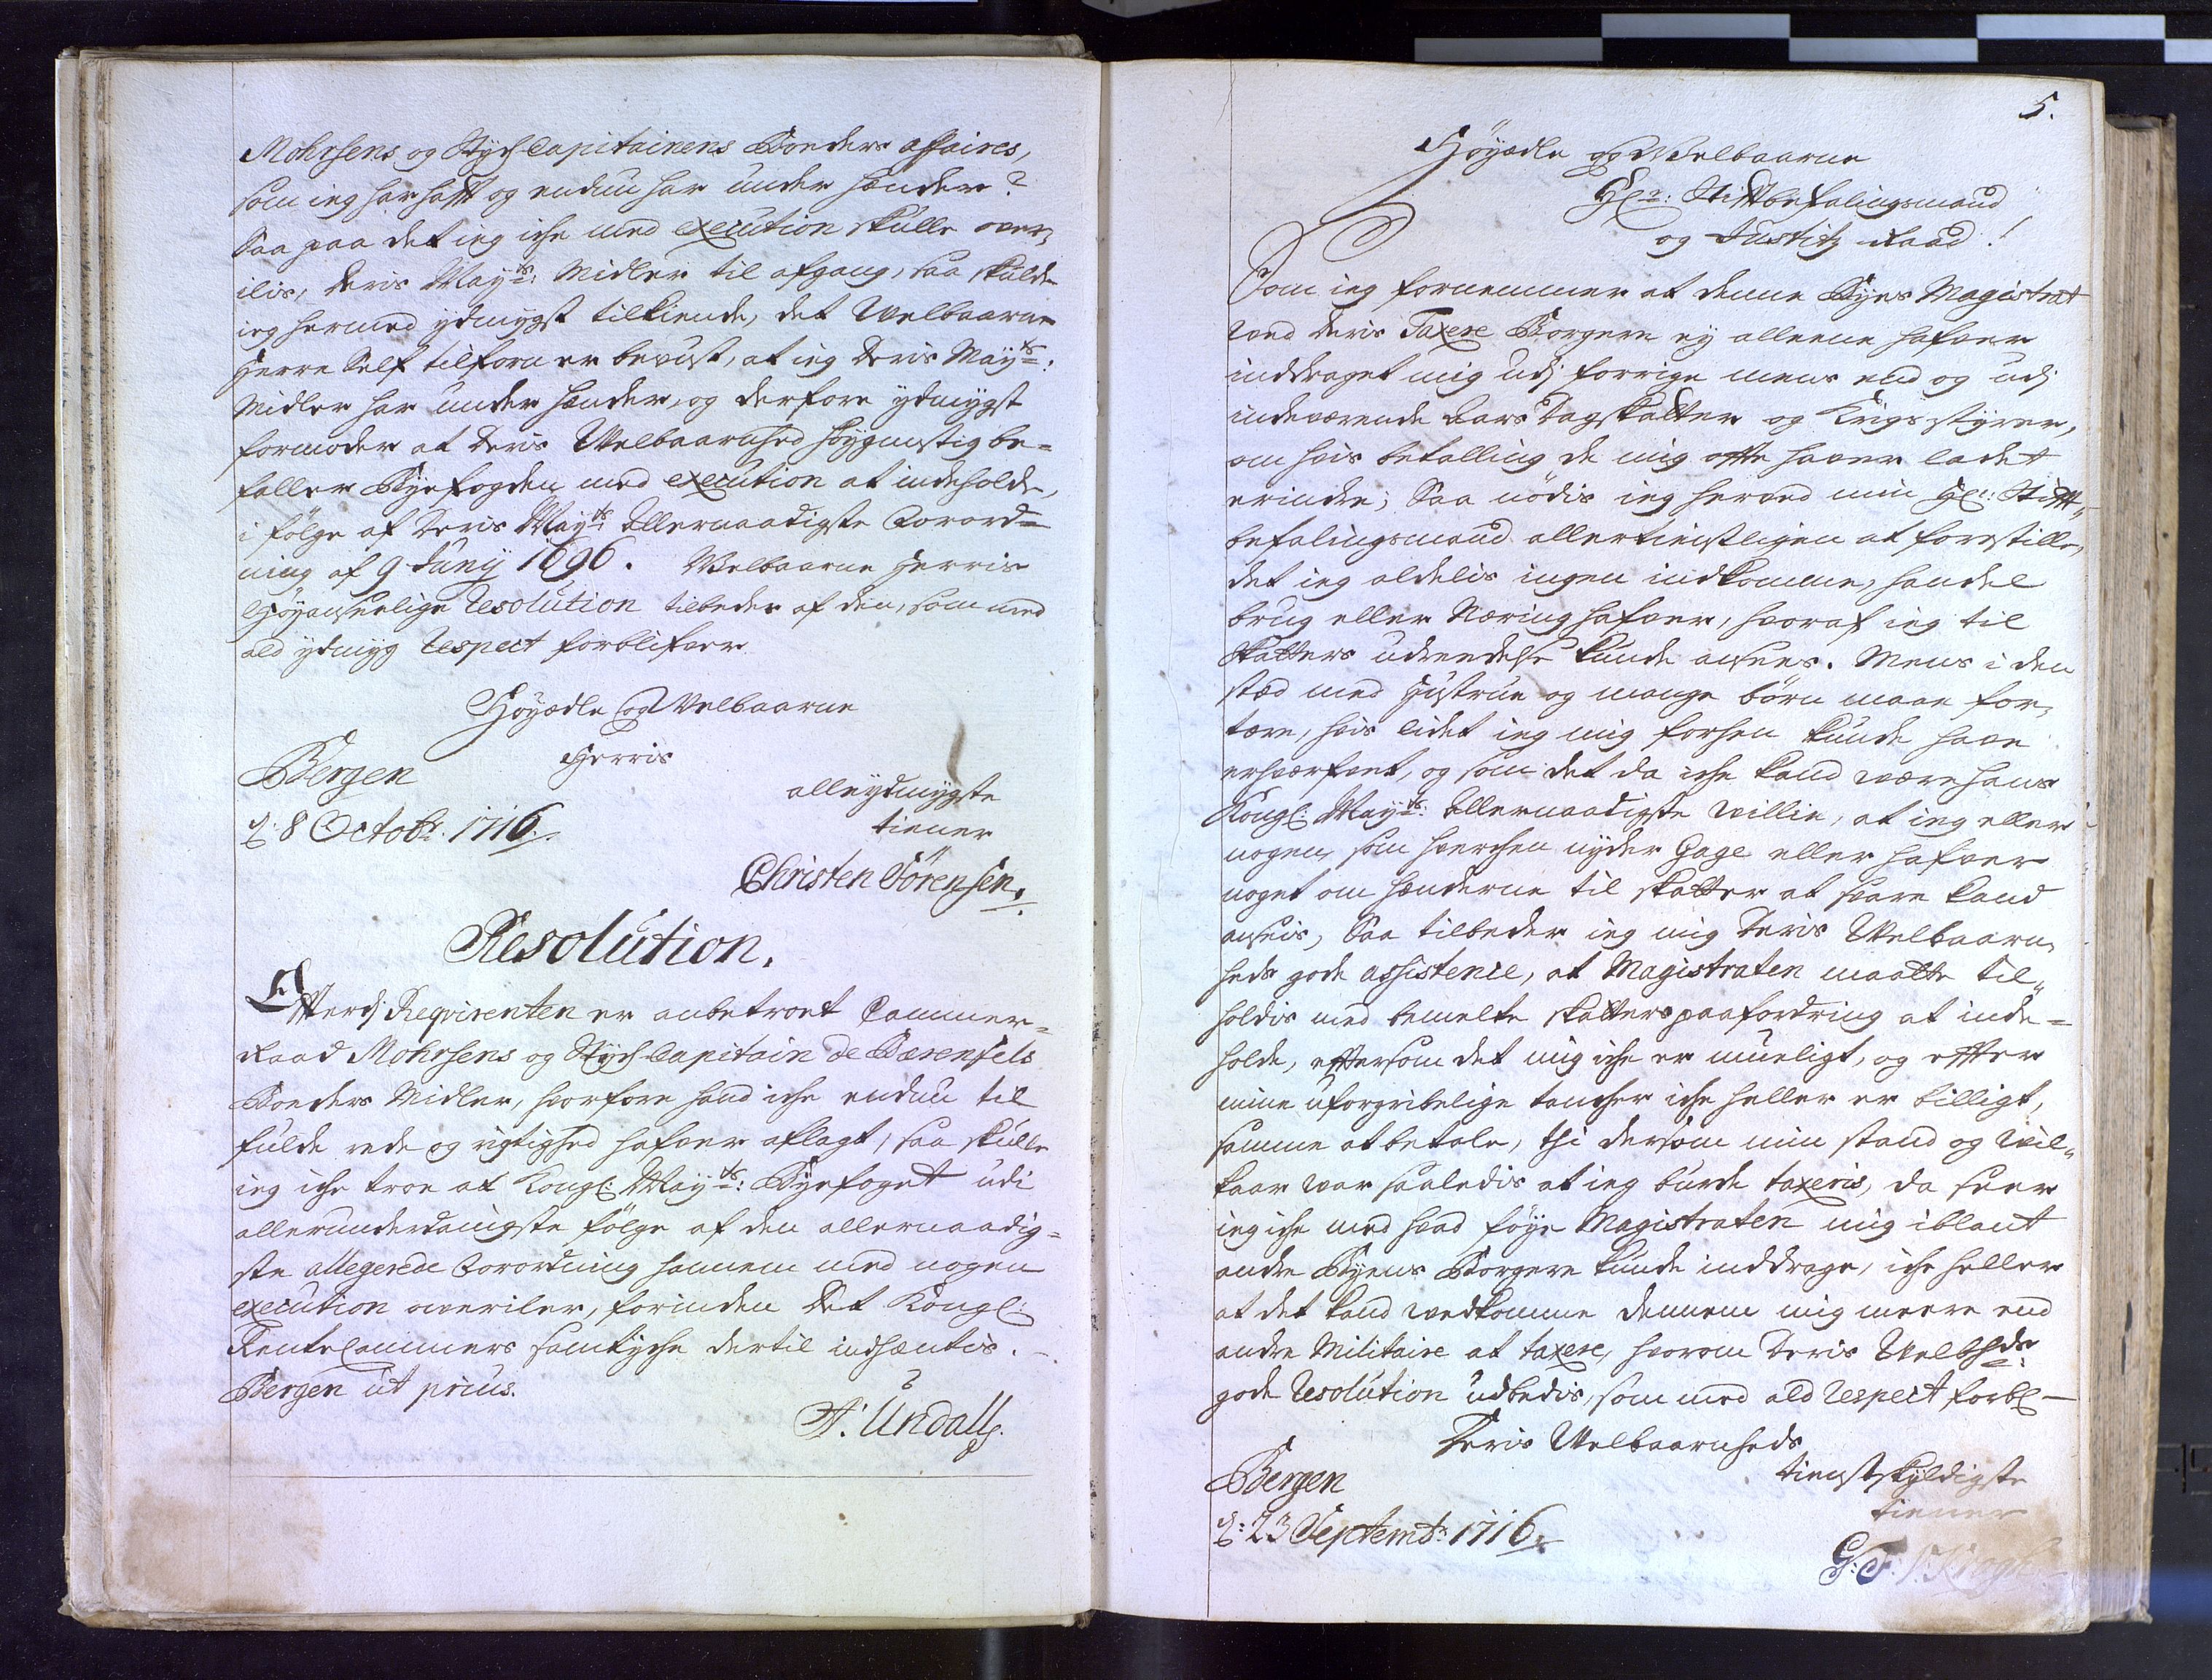 Mohrsens og Stych Capitainens Boeders affaires,
som ieg har hafft og endnu har under hender?
Saa paa det ieg iche med execution skulle over¬
ilis, deris Mayts: Midler til afgang, saa skulde
ieg hermed ydmygst tilkiende, det Welbaarne
Herre Self tilforn er bevust, at ieg Deris Mayts:
Midler har under hender, og derfore ydmygst
formoder at Deris Welbaarnhed høygunstig be¬
faller Byefogden med execution at indeholde,
i følge af Deris Mayts allernaadigste Forord¬
ning af 9 Junij 1696. Welbaarne Herris
Høyanseelige Resolution tilbeder af den, som med
ald ydmyg Respect forblifver
Høyædle og Welbaarne
Herris
Bergen
alleydmygste
d: 8 Octobr. 1716.
tiener
Christen Sörensen.
Resolution.
Efterdj Reqvirenten er anbetroet Cammer¬
Raad Mohrsens og Stych-Capitain de Bærenfels
Boeders Midler, hvorfore hand iche endnu til
fulde rede og rigtighed hafver aflagt, saa skulle
ieg iche troe at Kongl: Mayts: Byefoget udi
allerunderdanigste følge af den allernaadig¬
ste allegerede Forordning hannem med nogen
execution overiler, forinden Det Kongl:
Rente Cammers samtyche dertil indhæntis.
Bergen ut prius.
A. Undall.
5.
Høyædle og Welbaarne
Hr: Stiftbefalingsmand
og Justitz Raad!
Som ieg fornemmer at denne Byes Magistrat
ved deris Taxere Borgere ey alleene hafver
inddraget mig udj forrige mens end og udj
indeværende Aars Dagskatter og Krigs styrer,
om hvis betalling de mig offte haver ladet
erindre; Saa nødis ieg herved min Hr: Stift¬
befalingsmand allertienstligen at forestille,
det ieg aldelis ingen indkomme, handel
brug eller Næring hafver, hvoraf ieg til
Skatters udreedelse kunde ansees. Mens i den
sted med Hustrue og mange børn maae for¬
tære, hvis lidet ieg mig forhen kunde have
erhverfvet, og som det da iche kand være hans
Kongl: Mayts: allernaadigste willie, at ieg eller
nogen som hverchen nyder Gage eller hafver
noget om hænderne til skatter at svare kand
anseis, Saa tilbeder ieg mig Deris Welbaarn¬
heds gode assistence, at Magistraten maatte til¬
holdis med bemelte skatters paafordring at inde¬
holde, eftersom det mig iche er mueligt, og effter
mine uforgribelige tancher iche heller er billigt,
samme at betale, thi dersom min stand og vil¬
kaar var saaledis at ieg burde taxeris, da seer
ieg iche med hvad føye Magistraten mig iblant
andre Byens Borgere kunde inddrage, iche heller
at det kand vedkomme dennem mig meere end
andre Militaire at taxere, hvorom Deris Welbhds:
gode Resolution udbedis, som med ald respect forbl
Deris Welbaarnheds
Bergen
tienstskyldigste
d: 23 Septembr 1716.
tiener
G: F: v: Krogh